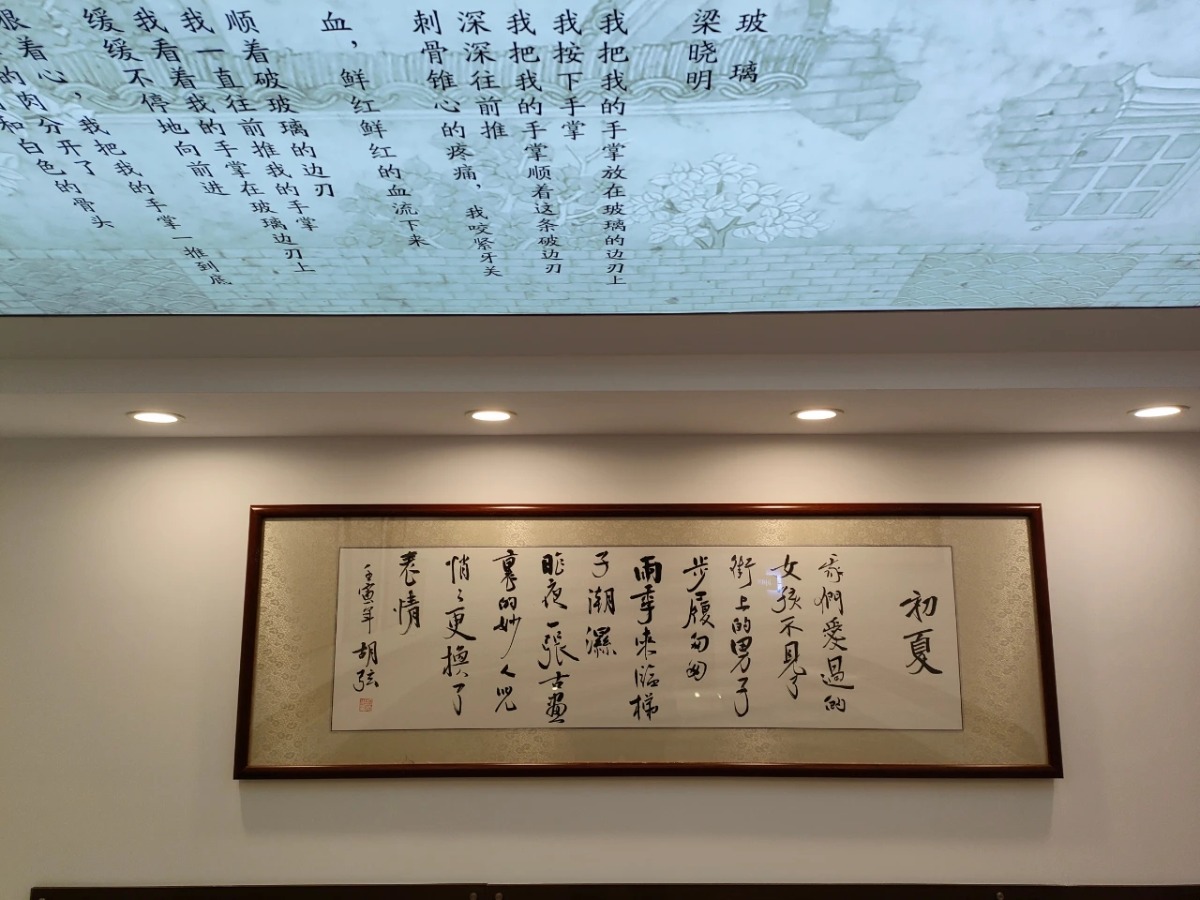 玻璃
梁晓明
我把我的手掌放在玻璃的边刃上
我按下手掌
我把我的手掌顺着这条破边刃
深深往前推
刺骨锥心的疼痛，我咬紧牙关
血，鲜红鲜红的血流下来
顺着破玻璃的边刃
我一直往前推我的手掌
我看着我的手掌在玻璃边刃上
缓缓不停地向前进
狠着心，我把我的手掌一推到底
的肉分开了
和白色的骨头
初夏
我們愛過的
女孩不見了
街上的男子
步履匆匆
雨季來臨梯
子潮濕
昨夜一張古畫
裏的妙人兒
悄々更換了
表情
壬寅年 胡弦